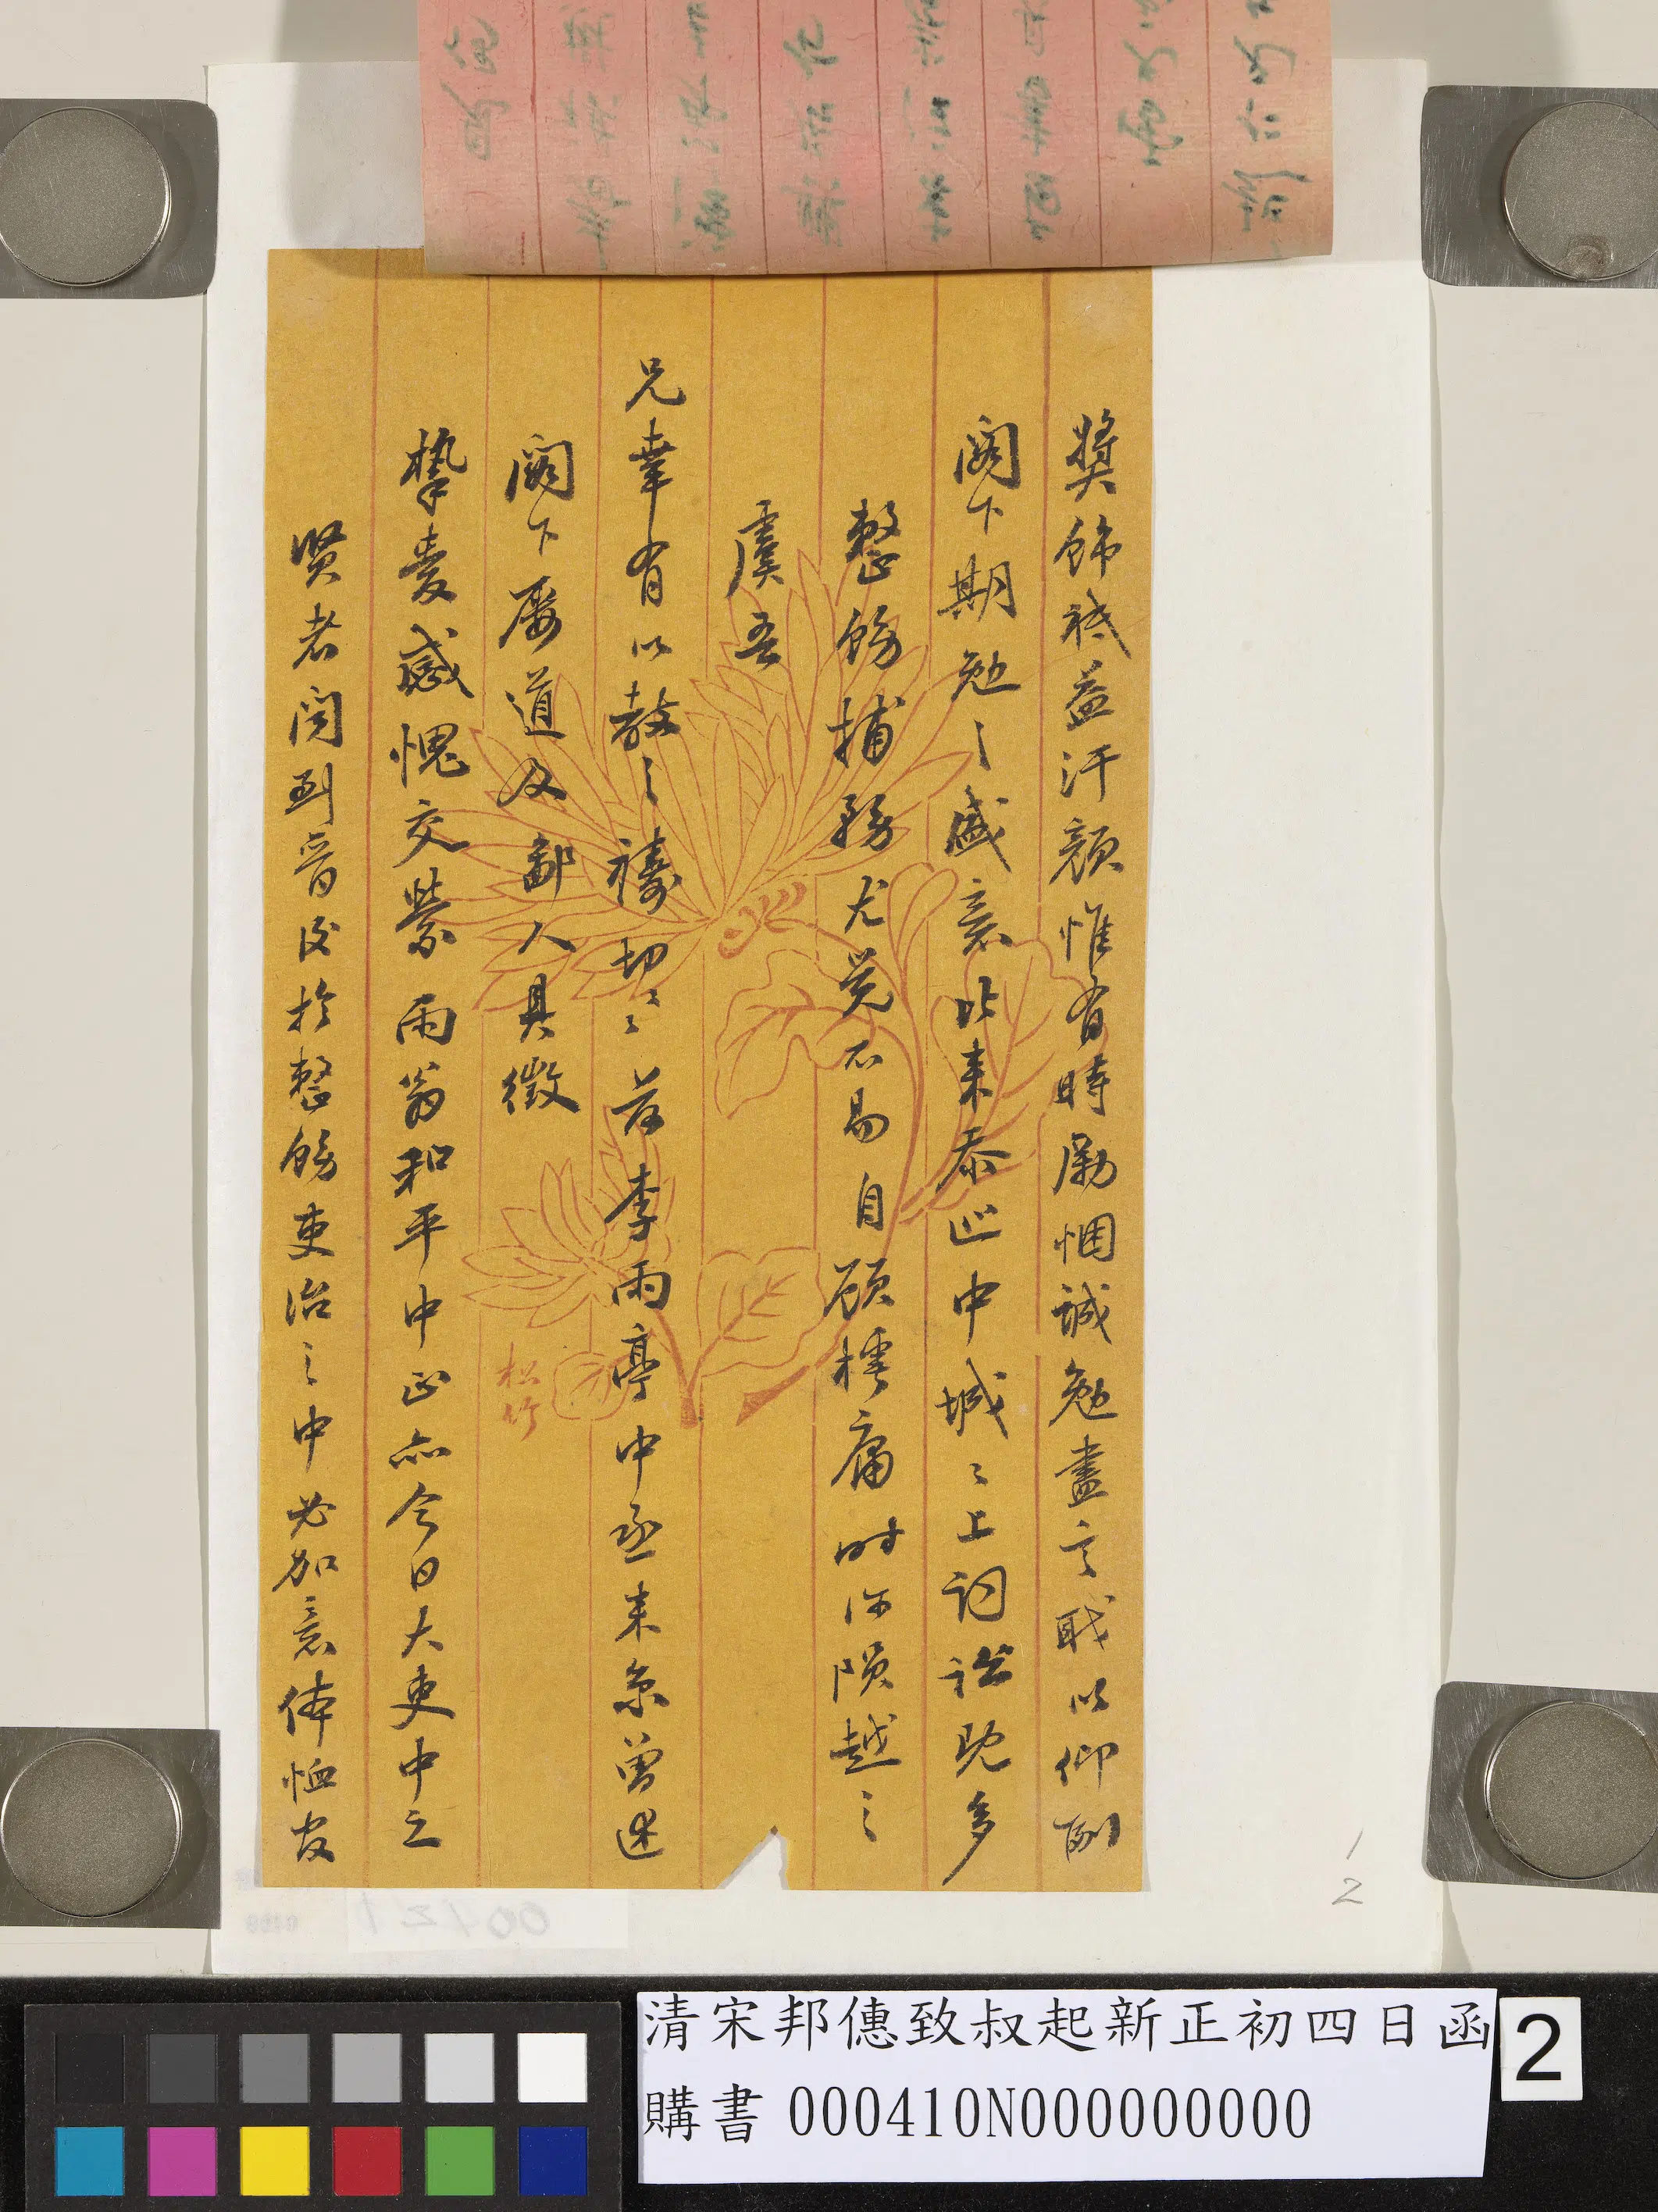 獎飾祗益汗顏惟有時勵悃誠勉盡言職以仰酬
閣下期勉之盛意比來忝巡中城之上詞訟既多
整飭捕務尤覺不易自顧樗庸時深隕越之
虞吾
兄幸有以教之禱切之前李雨亭中丞來京曾述
閣下屢道及鄙人具徵
摯愛感愧交縈雨翁和平中正亦今日大吏中之
賢者聞到晉後於整飭吏治之中必加意体恤友
松竹
1
2
清宋邦僡致叔起新正初四日函
購書 000410N000000000
2